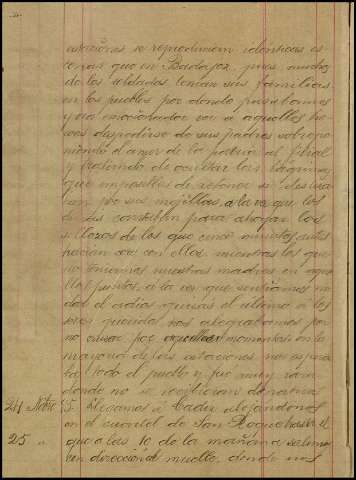 estaciones se reproducian identicas es-
cenas que en Badajoz, pues muchos
de los soldados tenian sus familias
en los pueblos por donde pasabamos
y era emocionador ver a aquellos he-
roes despedirse de sus padres sobrepo-
niendo el amor de la patria al filial
y tratando de ocultar las lagrimas
que imposibles de retener se
por sus mejillas, a la vez que los
para ahogar los
de los que cinco minutos antes
con ellos, mientras los que
no teniamos nuestras madres en aque-
llos puntos, a la vez que sentiamos no
dar el adios, quizas el ultimo a los
seres queridos, nos alegrabamos por
no pasar por aquellos momentos. En la
mayoria de las estaciones nos espera-
ba todo el pueblo y fue muy rara
donde no se
24 Novre Llegamos á Cadiz alojandonos
en el cuartel de San Roque hasta el
25 " que a las 10 de la mañana salimos
en direccion al muelle, donde nos